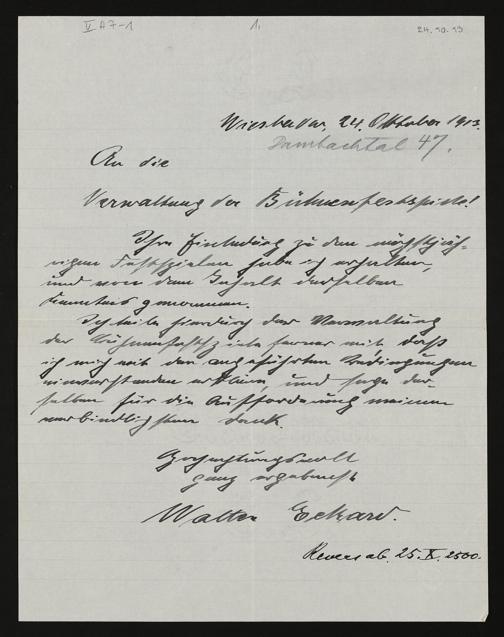 V A 7-1
1.
24.10.13
Wiesbaden, 24. Oktober 1913.
Dambachtal 47.
An die
Verwaltung der Bühnenfestspiele!
Ihre Einladung zu den nächstjäh-
rigen Festspielen habe ich erhalten,
und von dem Inhalt derselben
Kenntnis genommen.
Ich teile hierdurch der Verwaltung
der Bühnenfestspiele ferner mit, daß
ich mich mit den angeführten Bedingungen
einverstanden erkläre, und sage der-
selben für die Aufforderung meinen
verbindlichsten Dank.
Hochachtungsvoll
ganz ergebenst
Walter Eckard.
Revers ab. 25. X. 2500.